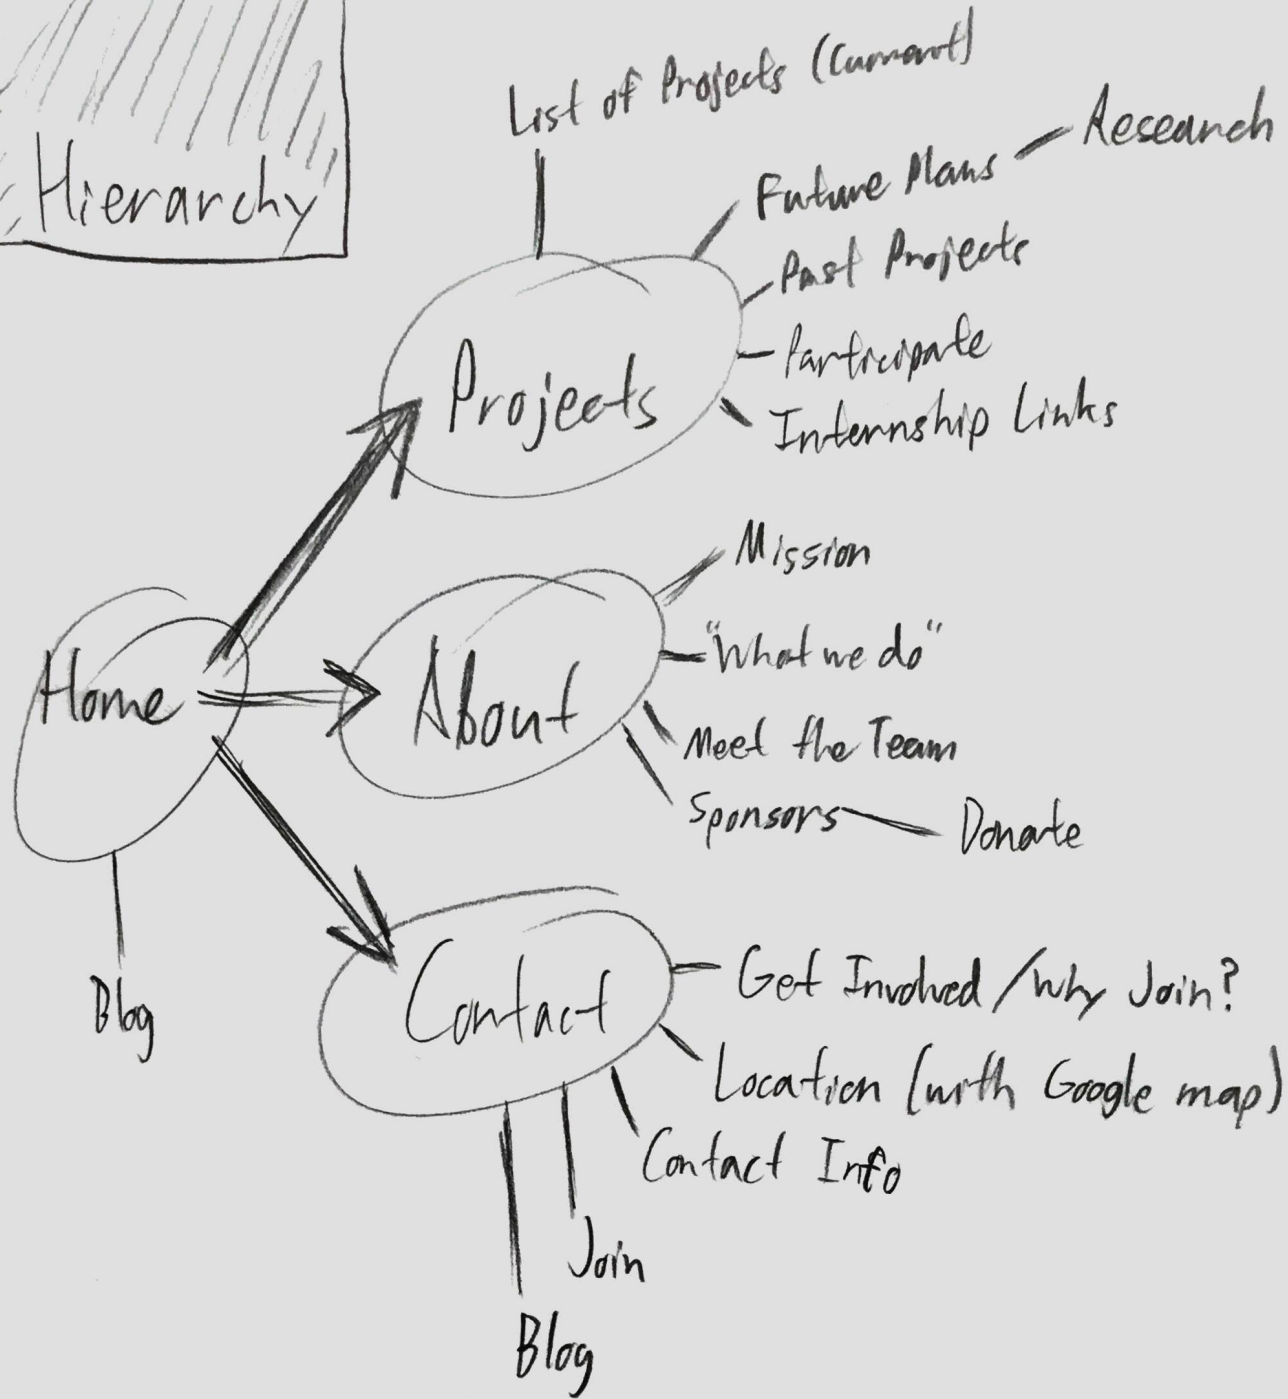 Hierarchy
List of Projects (Current)
Future Plans
Research
Past Projects
Projects
Participate
Internship Links
Mission
Home
About
"What we do"
Meet the Team
Sponsors
Donate
Blog
Contact
Get Involved / Why Join?
Location (with Google map)
Contact Info
Join
Blog